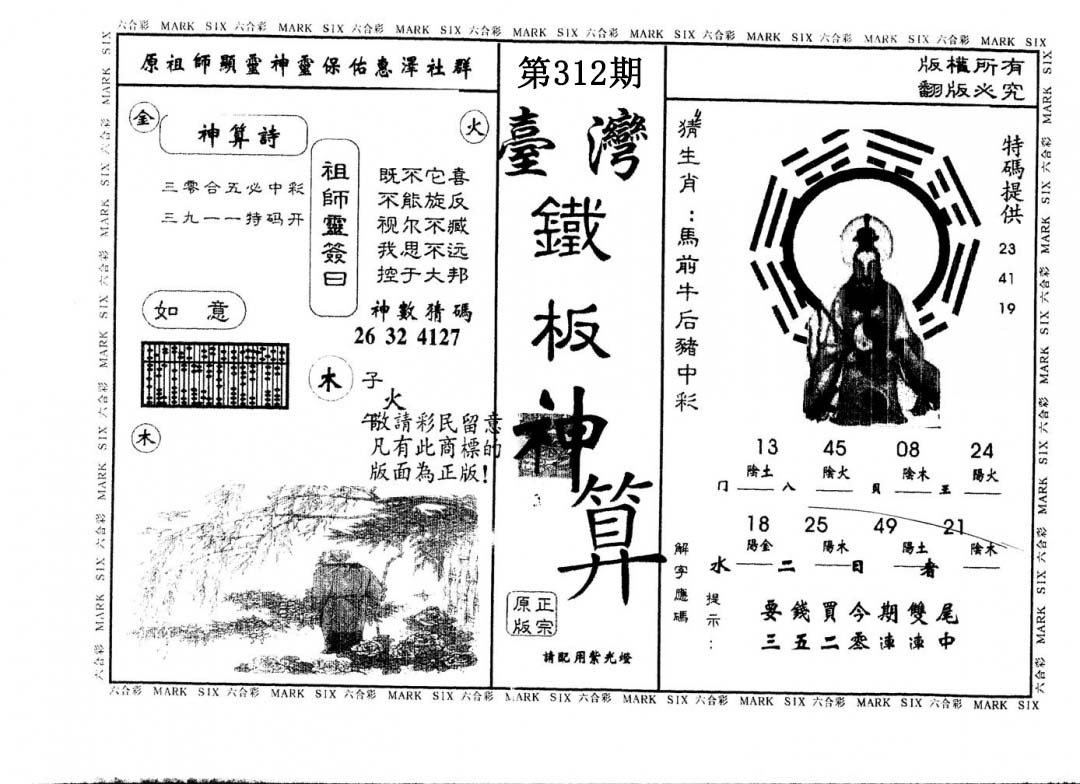 六合彩 MARK SIX 六合彩 MARK SIX 六合彩 MARK SIX 六合彩 MARK SIX 六合彩 MARK SIX 六合彩 MARK SIX 六合彩 MARK SIX 六合彩 MARK SIX
原祖師顯靈神靈保佑惠澤社群
金
神算詩
火
三零合五必中彩
三九一一特码开
祖師靈簽曰
既不它喜
不能旋反
视尔不臧
我思不远
控于大邦
神數猜碼
26 32 4127
如意
木 子
火
午
敬請彩民留意
凡有此商標的
版面為正版!
木
第312期
臺灣
鐵
板
神
算
正宗
原版
請配用紫光燈
版權所有
翻版必究
猜生肖：馬前牛后豬中彩
特碼提供
23
41
19
13 45 08 24
陰土 陰火 陰木 陽火
冂 八 貝 王
18 25 49 21
陽金 陽木 陽土 陰木
水 二 日 者
解字應碼
提示：
要錢買今期雙尾
三五二零連連中
六合彩 MARK SIX 六合彩 MARK SIX 六合彩 MARK SIX 六合彩 MARK SIX 六合彩 MARK SIX 六合彩 MARK SIX 六合彩 MARK SIX 六合彩 MARK SIX